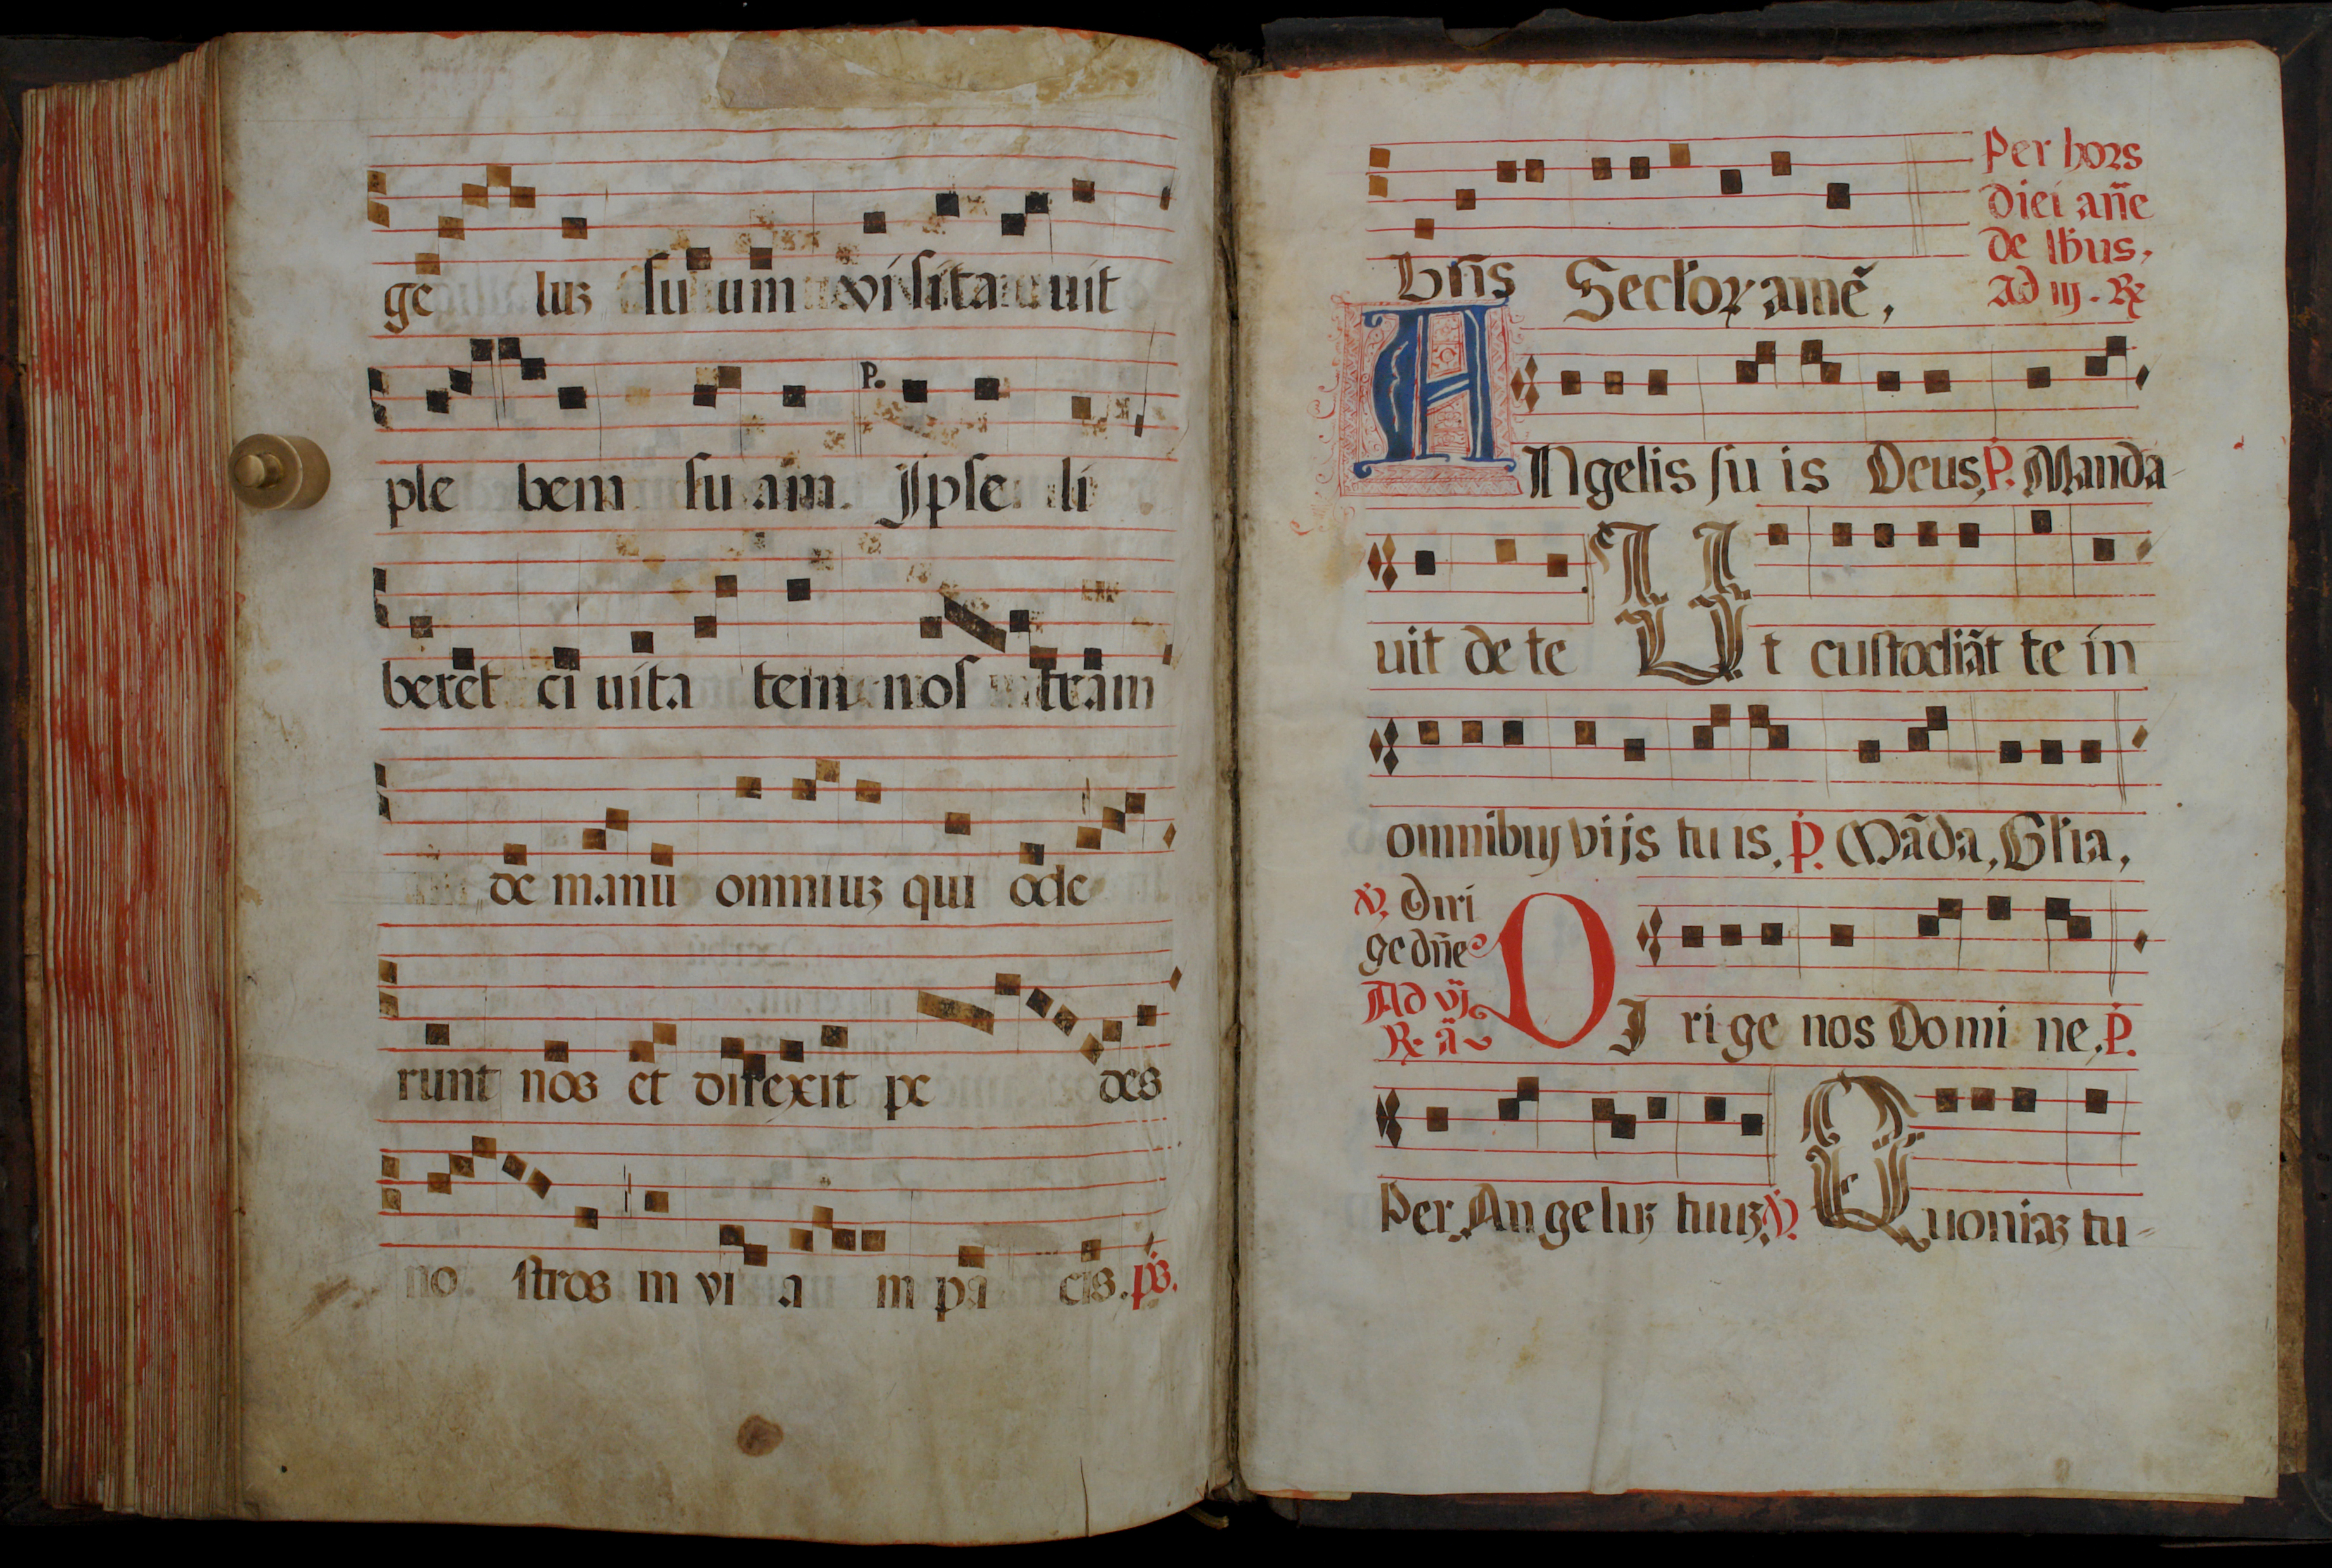 ge luz su um visita uit
ple bem su am. P. Ipse li
beret ci uita tem nos tram
de manu omniuz qui ode
runt nos et direxit pe des
no stros in vi a m pa cis. ps.
Per hors
diei añe
de lbus.
Ad iij. R
Bñs Seclor amẽ,
Angelis su is Deus, P. Manda-
uit de te Ut custodiãt te in
omnibus vijs tu is. P. Mãda, Glia,
V. Diri
ge dñe
Ad vj
R. ã
DI rige nos Domi ne. P.
Per Angeluz tuuz V. Quoniaz tu-